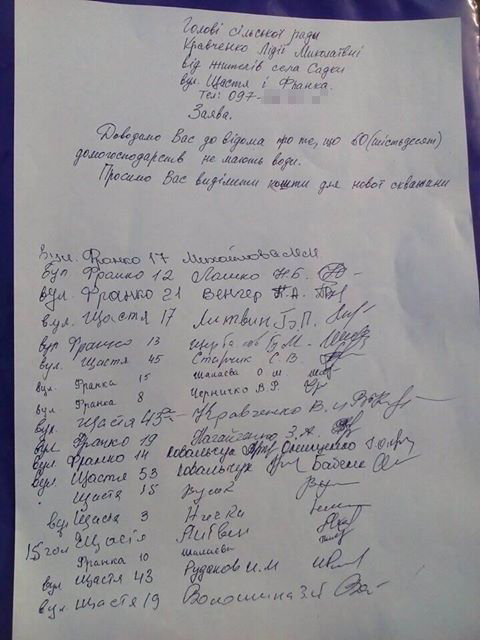 Голові сільської ради
Кравченко Лідії Миколаївні
від жителів села Садки
вул. Щастя і Франка.
Тел: 097-
Заява.
Доводимо Вас до відома про те, що 60 (шістьдесят)
домогосподарств не мають води.
Просимо Вас виділити кошти для нової скважини
Вул. Франко 17 Михайлова М.М
вул Франко 12 Лашко Н.Б.
вул. Франко 21 Венгер Н.А.
вул. Щастя 17 Литвин Б.П.
вул Франко 13
вул. Щастя 45 Старчик С.В.
вул. Франка 15 Шалаєва О М
вул. Франка 8 Черничко В.Р.
вул. Щастя 45 Кравченко В. и
вул. Франко 19 З.А.
вул. Франко 14 Ковальчук Онищенко
вул. Щастя 53 Ковальчук
Щастя 15
вул Щастя 3
15 Щастя Литвин
Франка 10 Шалаєва
вул Щастя 43 Руданов И.М
вул. Щастя 19 Волошина